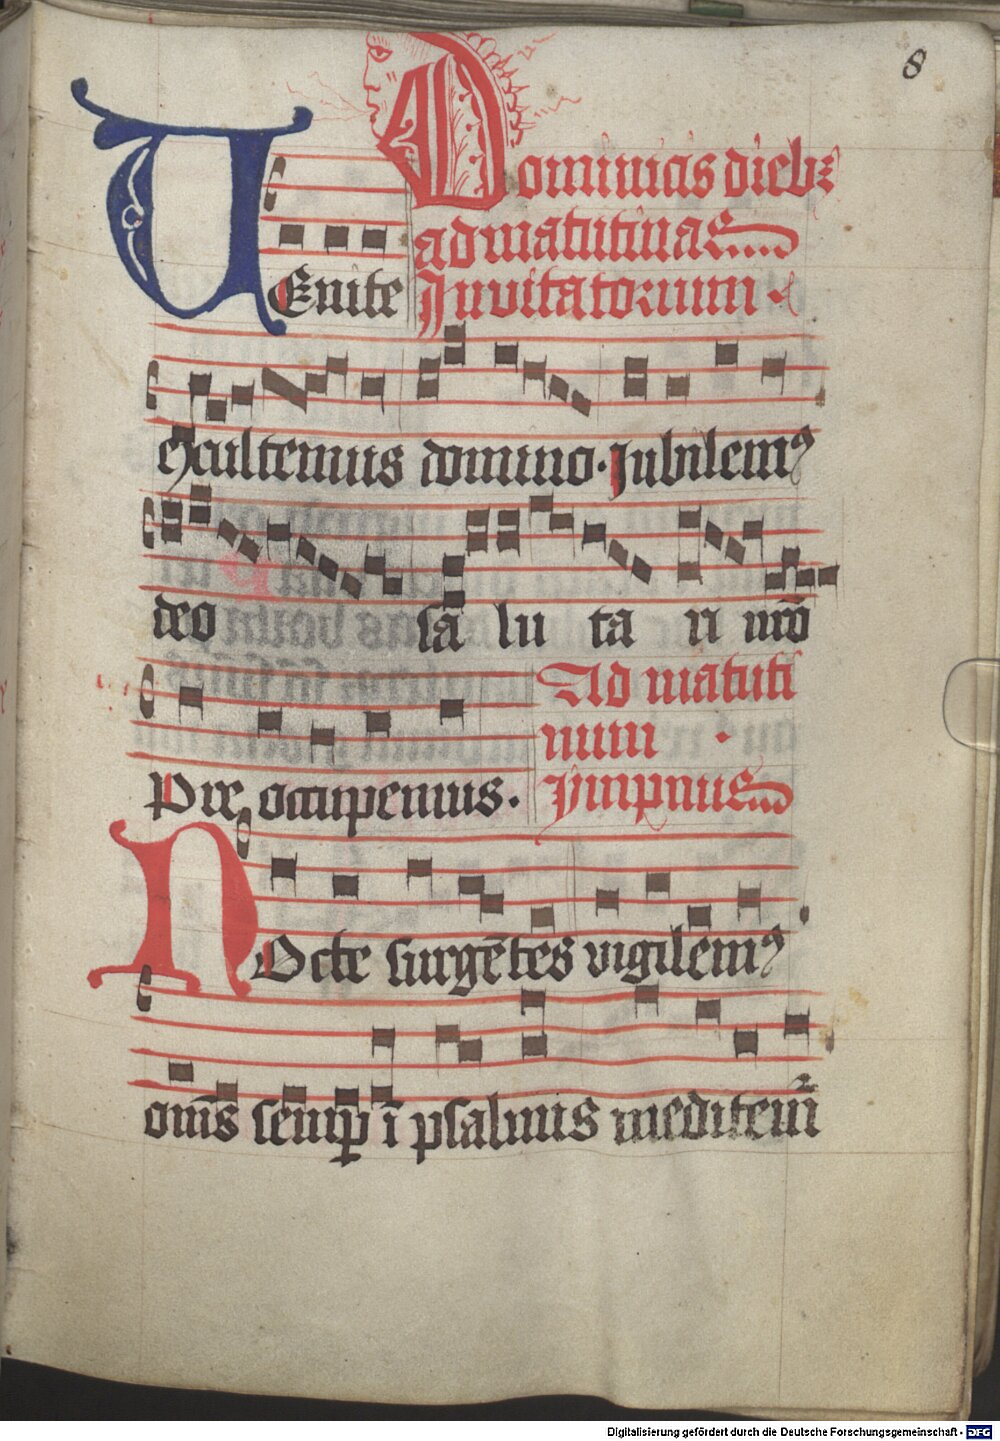 8
Dominicis dieb⁊
ad matutinas
VEnite Inuitatorium
excultemus domino. Jubilemꝰ
deo sa lu ta ri nr̄o
Ad matuti
num
Pre occupemus. Ympnus
NOcte surgētes vigilemꝰ
om̄s semꝑ ī psalmis meditem̄
Digitalisierung gefördert durch die Deutsche Forschungsgemeinschaft - DFG